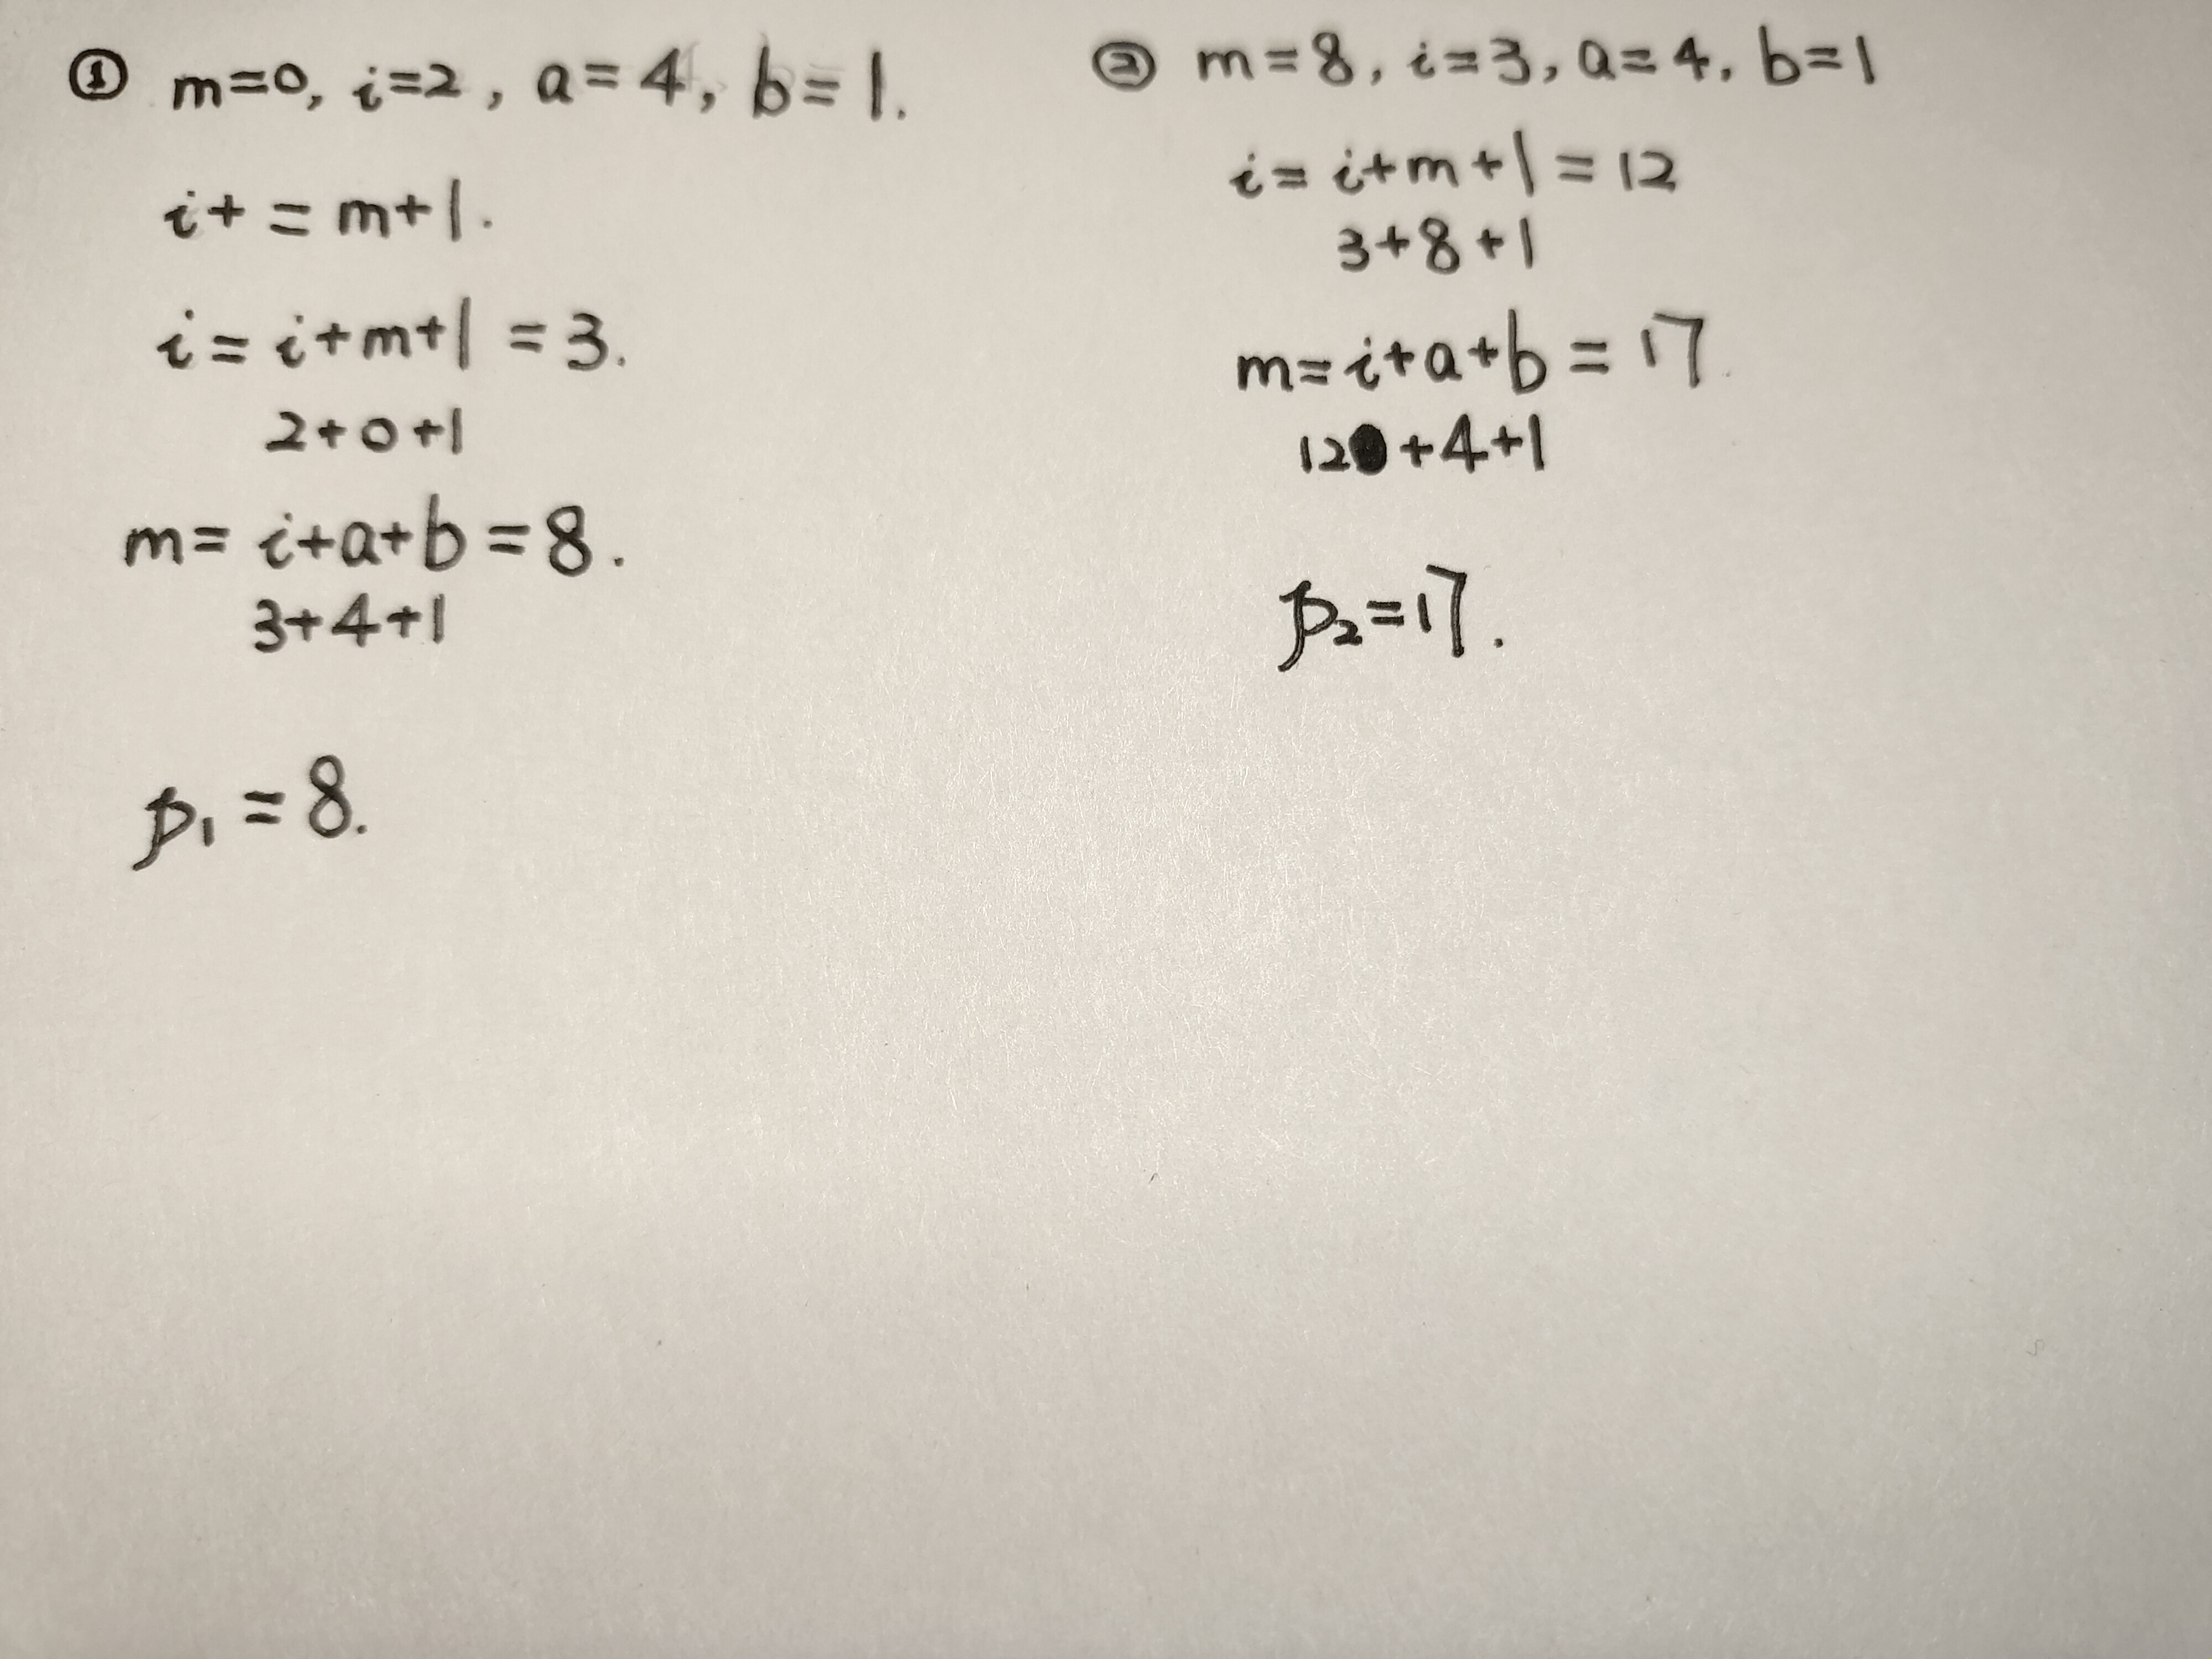 ① m=0, i=2, a=4, b=1.
i+=m+1.
i=i+m+1=3.
2+0+1
m=i+a+b=8.
3+4+1
p₁=8.
② m=8, i=3, a=4, b=1
i=i+m+1=12
3+8+1
m=i+a+b=17
12+4+1
p₂=17.